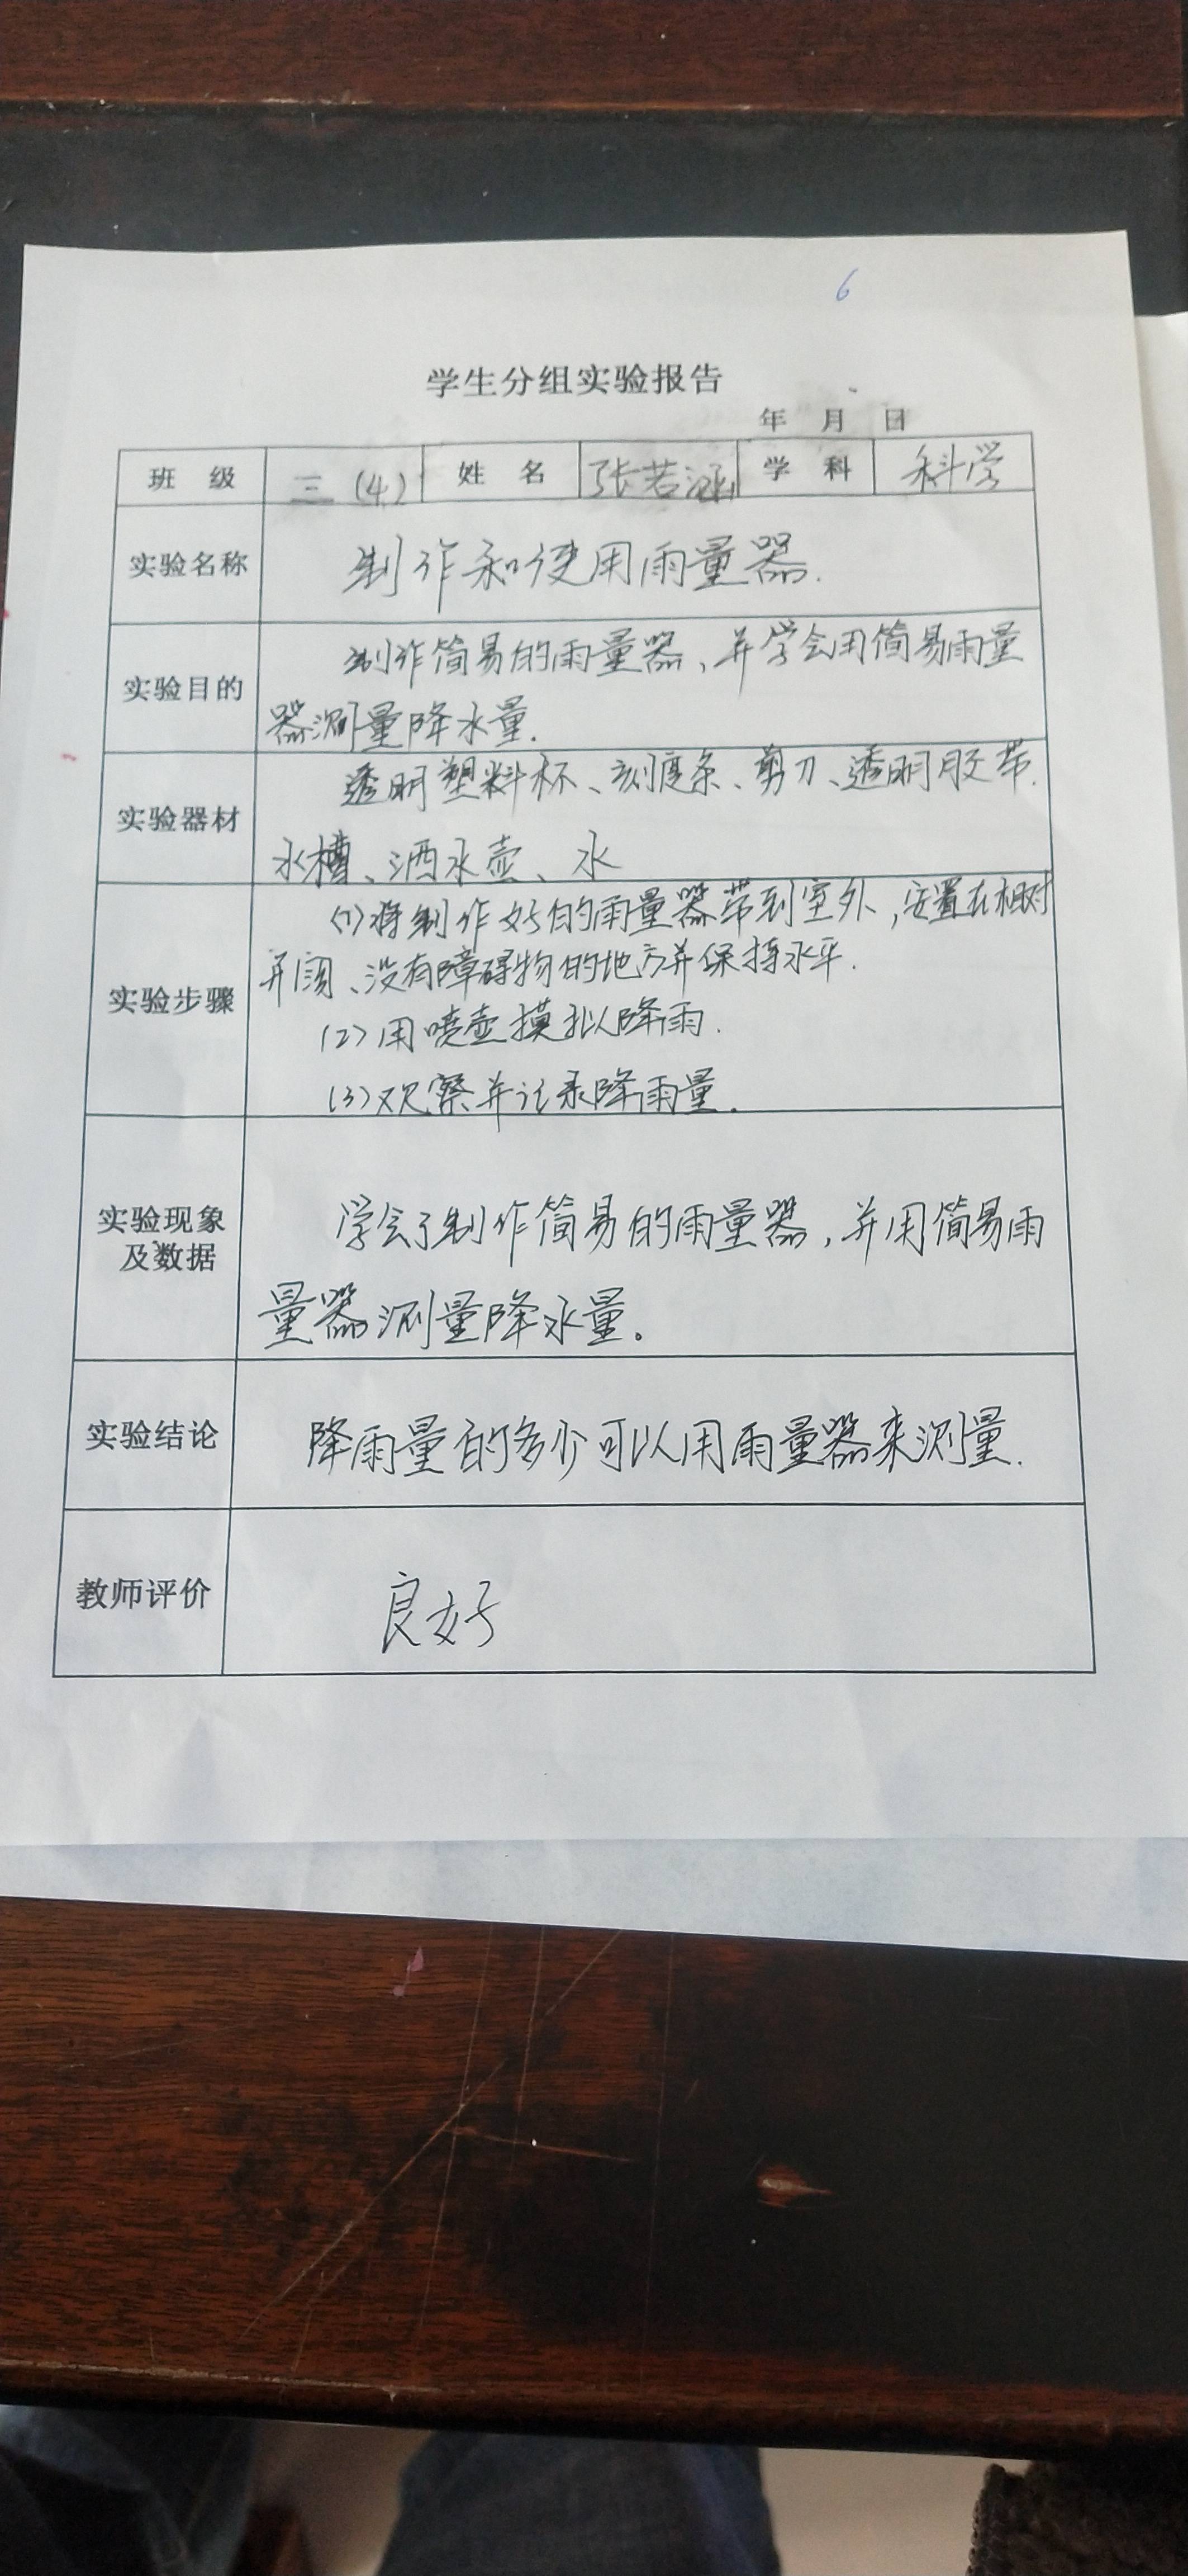 6
学生分组实验报告
年 月 日
班 级 三(4) 姓 名 张若涵 学 科 科学
实验名称 制作和使用雨量器.
实验目的 制作简易的雨量器、并学会用简易雨量
器测量降水量.
实验器材 透明塑料杯、刻度条、剪刀、透明胶带.
水槽、洒水壶、水
实验步骤 (1)将制作好的雨量器带到室外,安置在相对
开阔、没有障碍物的地方并保持水平.
(2)用喷壶摸拟降雨.
(3)观察并记录降雨量.
实验现象
及数据 学会了制作简易的雨量器,并用简易雨
量器测量降水量。
实验结论 降雨量的多少可以用雨量器来测量.
教师评价 良好